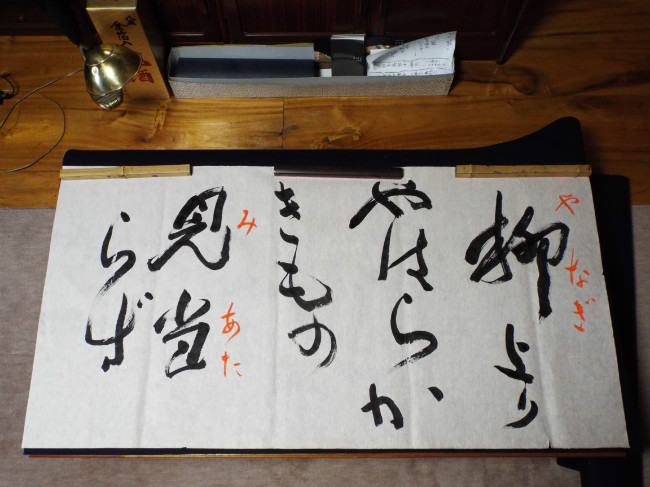 柳より
やなぎ
やはらか
きもの
見当
み あた
らず